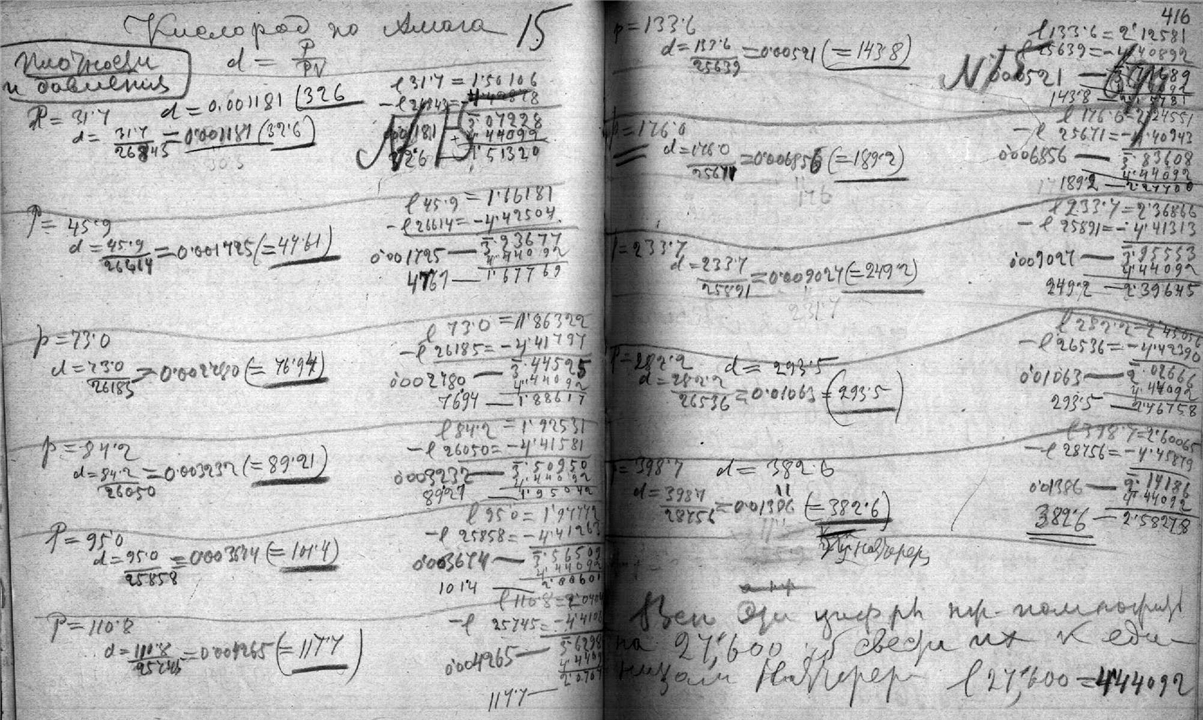 Кислород по Амага 15
плотности
и давления
d = P/pv
P = 31·7 d = 0.001181 (326
d = 31·7/26843 = 0.001181 (32.6)
l 31·7 = 1.50106
0.01181
326 1.51320
№ 15
P = 45·9
d = 45·9/26614 = 0.001725 (= 47.61)
l 45·9 = 1.66181
- l 26614 = -4.42504
0.001725 — 3.23677
4.44092
4761 — 1.67769
p = 73.0
d = 73.0/26185 = 0.002780 (= 76.94)
l 73.0 = 1.86322
- l 26185 = -4.41797
0.002780 — 3.44525
4.44092
7694 — 1.88617
p = 84.2
d = 84.2/26050 = 0.003232 (= 89.21)
l 84.2 = 1.92531
- l 26050 = -4.41581
0.003232 — 3.50950
4.44092
8921 — 1.95042
P = 95.0
d = 95.0/25858 = 0.003674 (= 101.4)
l 95.0 = 1.97772
- l 25858 = -4.41263
0.003674 — 3.56509
4.44092
101.4 — 2.00601
P = 110.8
d = 110.8/25745 = 0.004265 (= 117.7)
l 110.8 =
- l 25745 =
0.004265
117.7
416
p = 133.6
d = 133.6/25639 = 0.00521 (= 143.8)
l 133.6 = 2.12581
l 25639 = -4.40892
0.00521
143.8
№ 15
p = 176.0
d = 176.0/25671 = 0.006856 (= 189.2)
l 176.0 = 2.24551
- l 25671 = -4.40943
0.006856 — 3.83608
4.44092
189.2 — 2.27700
p = 233.7
d = 233.7/25891 = 0.009027 (= 249.2)
l 233.7 = 2.36866
- l 25891 = -4.41313
0.009027 — 3.95553
4.44092
249.2 — 2.39645
p = 282.2 d = 293.5
d = 282.2/26536 = 0.01063 = (293.5)
l 282.2 = 2.45056
- l 26536 = -4.42390
0.01063 — 2.02666
4.44092
293.5 — 2.46758
p = 398.7 d = 382.6
d = 398.7/28756 = 0.01386 (= 382.6)
l 398.7 = 2.60065
- l 28756 = -4.45879
0.01386 — 2.14186
4.44092
382.6 — 2.58278
Все эти цифры
на 27,600 чтоб свести их к еди-
ницам l 27,600 = 4.44092